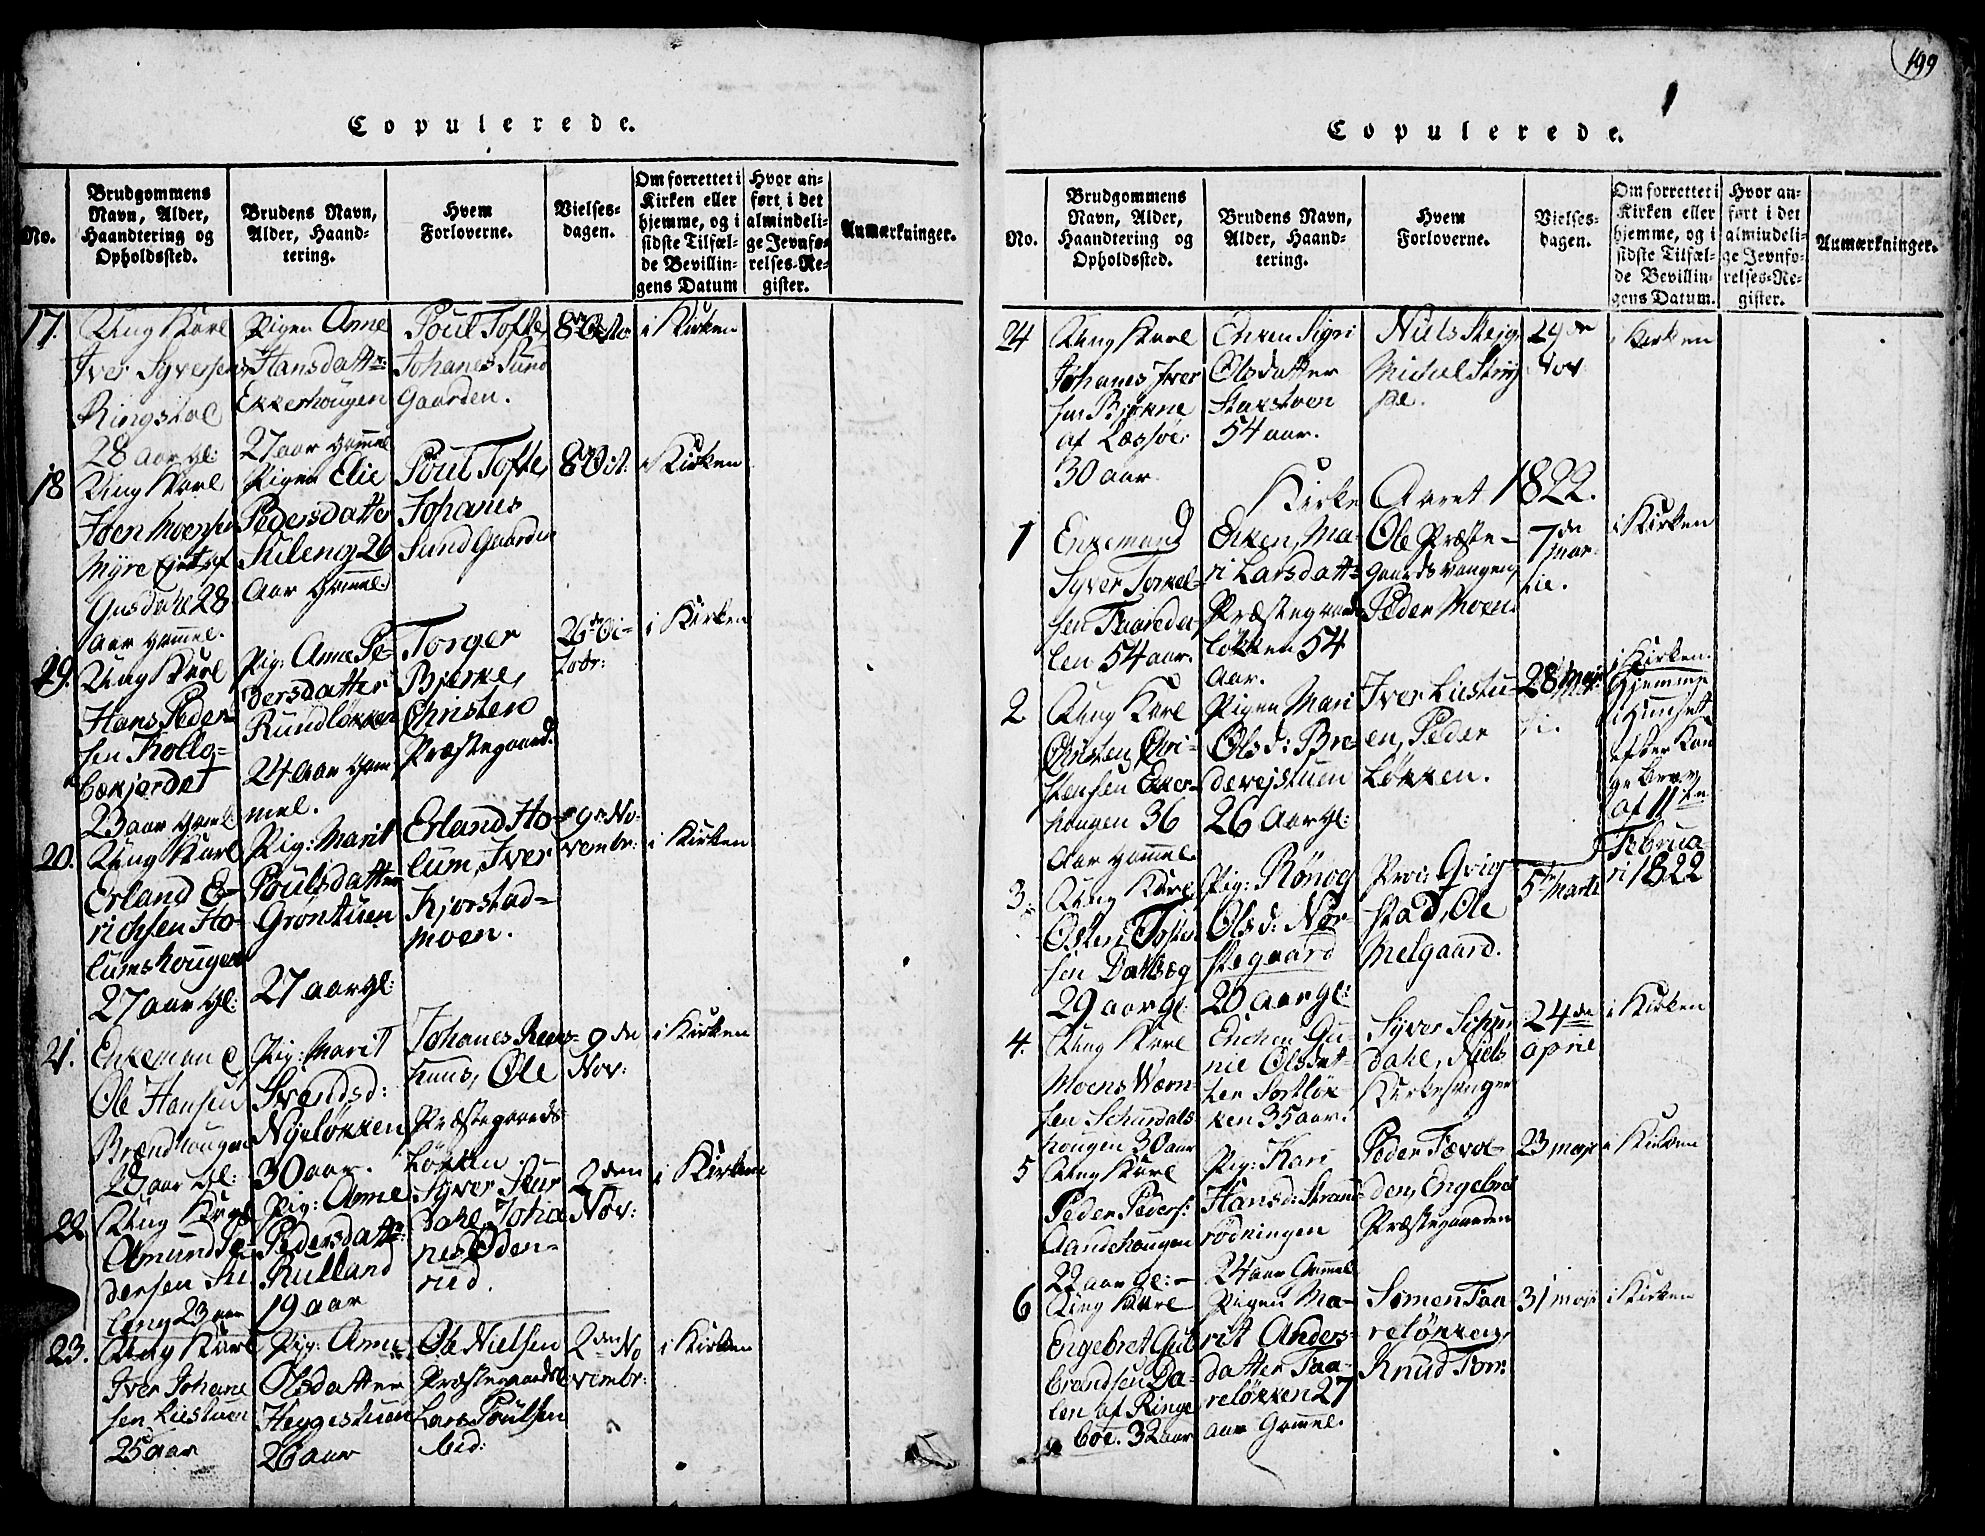 199
Copulerede.
No.
Brudgommens
Navn, Alder,
Haandtering og
Opholdssted.
Brudens Navn,
Alder, Haand-
tering.
Hvem
Forloverne.
Vielses-
dagen.
Om forrettet i
Kirken eller
hjemme, og i
sidste Tilfæl-
de Bevillin-
gens Datum
Hvor an-
ført i det
almindeli-
ge Jevnfø-
relses-Re-
gister.
Anmærkninger.
17.
Ung Karl
Iver Syversen
Ringstad
28 aar gl:
Pigen Anne
Hansdatter
Ekkerhougen
27 aar gammel
Poul Tofte,
Johanes Sund
Gaarden.
8de Octo
i Kirken
18
Ung Karl
Joen Moensen
Myre
Gusdahl 28
aar gammel.
Pigen Elie
Pedersdatter
Sileng 26
Aar Gammel.
Poul Tofte,
Johanes
Sund Gaarden
8de Oct:
i Kirken
19.
Ung Karl
Hans Peder
sen Kollo-
bækjordet
23 aar gaml:
Pig: Anne Pe-
dersdatter
Rundløkken
24 Aar gam
mel.
Torger
Bjerke,
Christen
Præstegaard.
26de Oc-
tobr:
i Kirken
20.
Ung Karl
Erland E-
richsen Ho-
lumshougen
27 aar gl:
Pig: Marit
Poulsdatter
Grøntuen
27 aar gl:
Erland Ho-
lum, Iver
Kjorstad-
moen.
9de No-
vembr:
i Kirken
21.
Enkemand
Ole Hansen
Brændhougen
28 aar gl:
Pig: Marit
Svendsd:
Nyeløkken
30 aar.
Johanes
huus, Ole
Præstegaards
Løkken
9de
Nov:
i Kirken
22.
Ung Karl
Amund Pe-
dersen Si
leng 23 aar
Pig: Anne
Pedersdatt:
Rulland
19 aar
Syver Skur
dahl, Joha
nes Øden-
rud.
2den
Nov:
i Kirken
23.
Ung Karl
Iver Johane
sen Liestuen
25 aar
Pig: Anne
Olsdatter
Heggestuen
26 aar
Ole Nielsen
Præstegaards
Lars Poulsen
ibid:
2den No
vembr:
i Kirken
Copulerede.
No.
Brudgommens
Navn, Alder,
Haandtering og
Opholdssted.
Brudens Navn,
Alder, Haand-
tering.
Hvem
Forloverne.
Vielses-
dagen.
Om forrettet i
Kirken eller
hjemme, og i
sidste Tilfæl-
de Bevillin-
gens Datum.
Hvor an-
ført i det
almindeli-
ge Jevnfø-
relses-Re-
gister.
Anmærkninger.
24
Ung Karl
Johanes Iver
sen Bjøkne
af Læssøe
30 aar
Enken Sigri
Olsdatter
Stakstuen
54 aar.
Niels Steig
Michel Strij
pe.
29de
Nov
i Kirken
Kirke Aaret 1822.
1
Enkemand
Syver Torkel-
sen Taareda-
len 54 aar.
Enken, Ma-
ri Larsdatt:
Præstegaards
løkken 54
Aar.
Ole Præste-
gaardsvangen,
Peder Moen.
7de
mar-
tie.
i Kirken
2
Ung Karl
Christen Chri-
stensen Ekker-
hougen 36
Aar gammel.
Pigen Mari
Olsd: Bre-
devejstuen
26 Aar gl:
Iver Liestu-
en, Peder
Løkken.
28
i Kirken.
3
Ung Karl
Østen Tosten
sen Dalseg
29 aar gl:
Pig: Rønog
Olsd: Nor-
stegaard
20 aar gl:
Qvig
stad, Ole
Melgaard.
5te Marti
Hjemme
efter Kon
ge brev
af 11te
Februa-
ri 1822
4.
Ung Karl
Moens
sen Schurdals
hougen 30 aar
Enken Gu-
nil Olsdat-
ter Sortløk-
ken 35 aar.
Syver Schur
dahl, Niels
Kirkesanger
24de
april
i Kirken
5
Ung Karl
Peder Peders:
Sandehougen
22 aar gl:
Pig: Kari
Hansd: Strand
rødningen
24 aar Gammel
Peder
den, Engebret
Præstegaarden
23 maji
i Kirken
6
Ung Karl
Engebret Gul
brandsen Da-
len af Ringe
boe. 32 aar
Pigen Ma-
rit Anders-
datter Taa-
reløkken 27
aar Gammel.
Simen Taa
reløkken,
Knud Tom:
31 maji
i Kirken